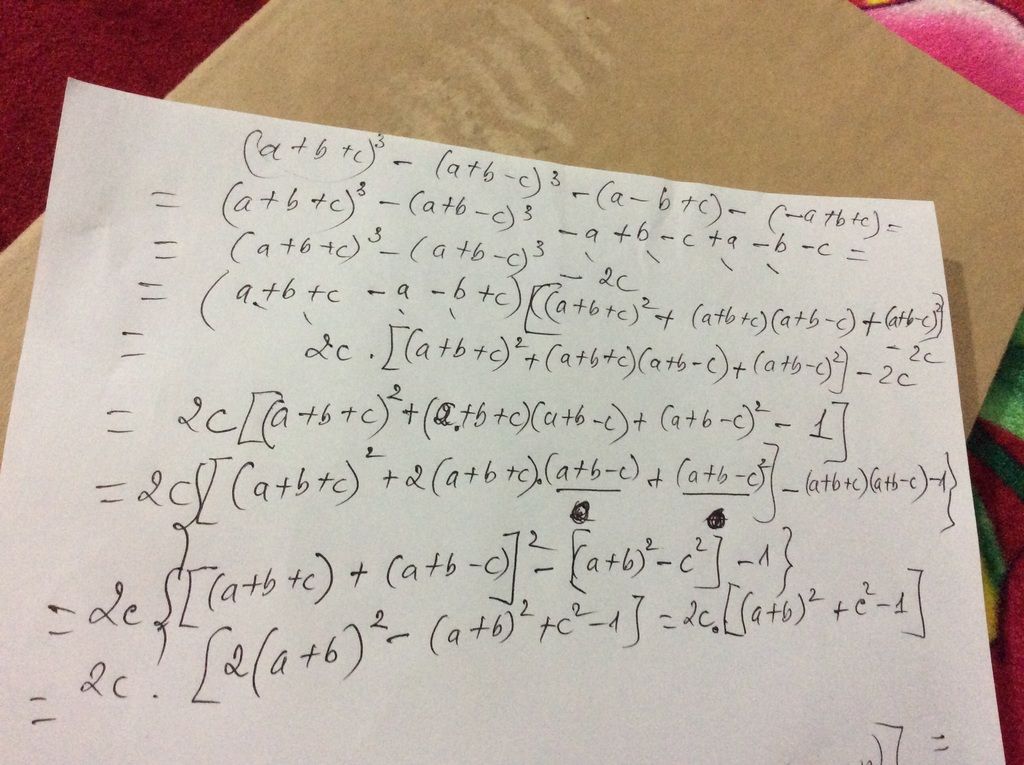 (a+b+c)³ - (a+b-c)³ - (a-b+c) - (-a+b+c) =
= (a+b+c)³ - (a+b-c)³ - a + b - c + a - b - c =
= (a+b+c)³ - (a+b-c)³ - 2c
= (a+b+c - a - b + c) [(a+b+c)² + (a+b+c)(a+b-c) + (a+b-c)²] - 2c
= 2c . [(a+b+c)² + (a+b+c)(a+b-c) + (a+b-c)²] - 2c
= 2c [(a+b+c)² + (a+b+c)(a+b-c) + (a+b-c)² - 1]
= 2c {[(a+b+c)² + 2(a+b+c).(a+b-c) + (a+b-c)²] - (a+b+c)(a+b-c) - 1}
= 2c {[(a+b+c) + (a+b-c)]² - [(a+b)² - c²] - 1}
= 2c . [2(a+b)² - (a+b)² + c² - 1] = 2c . [(a+b)² + c² - 1]
] =